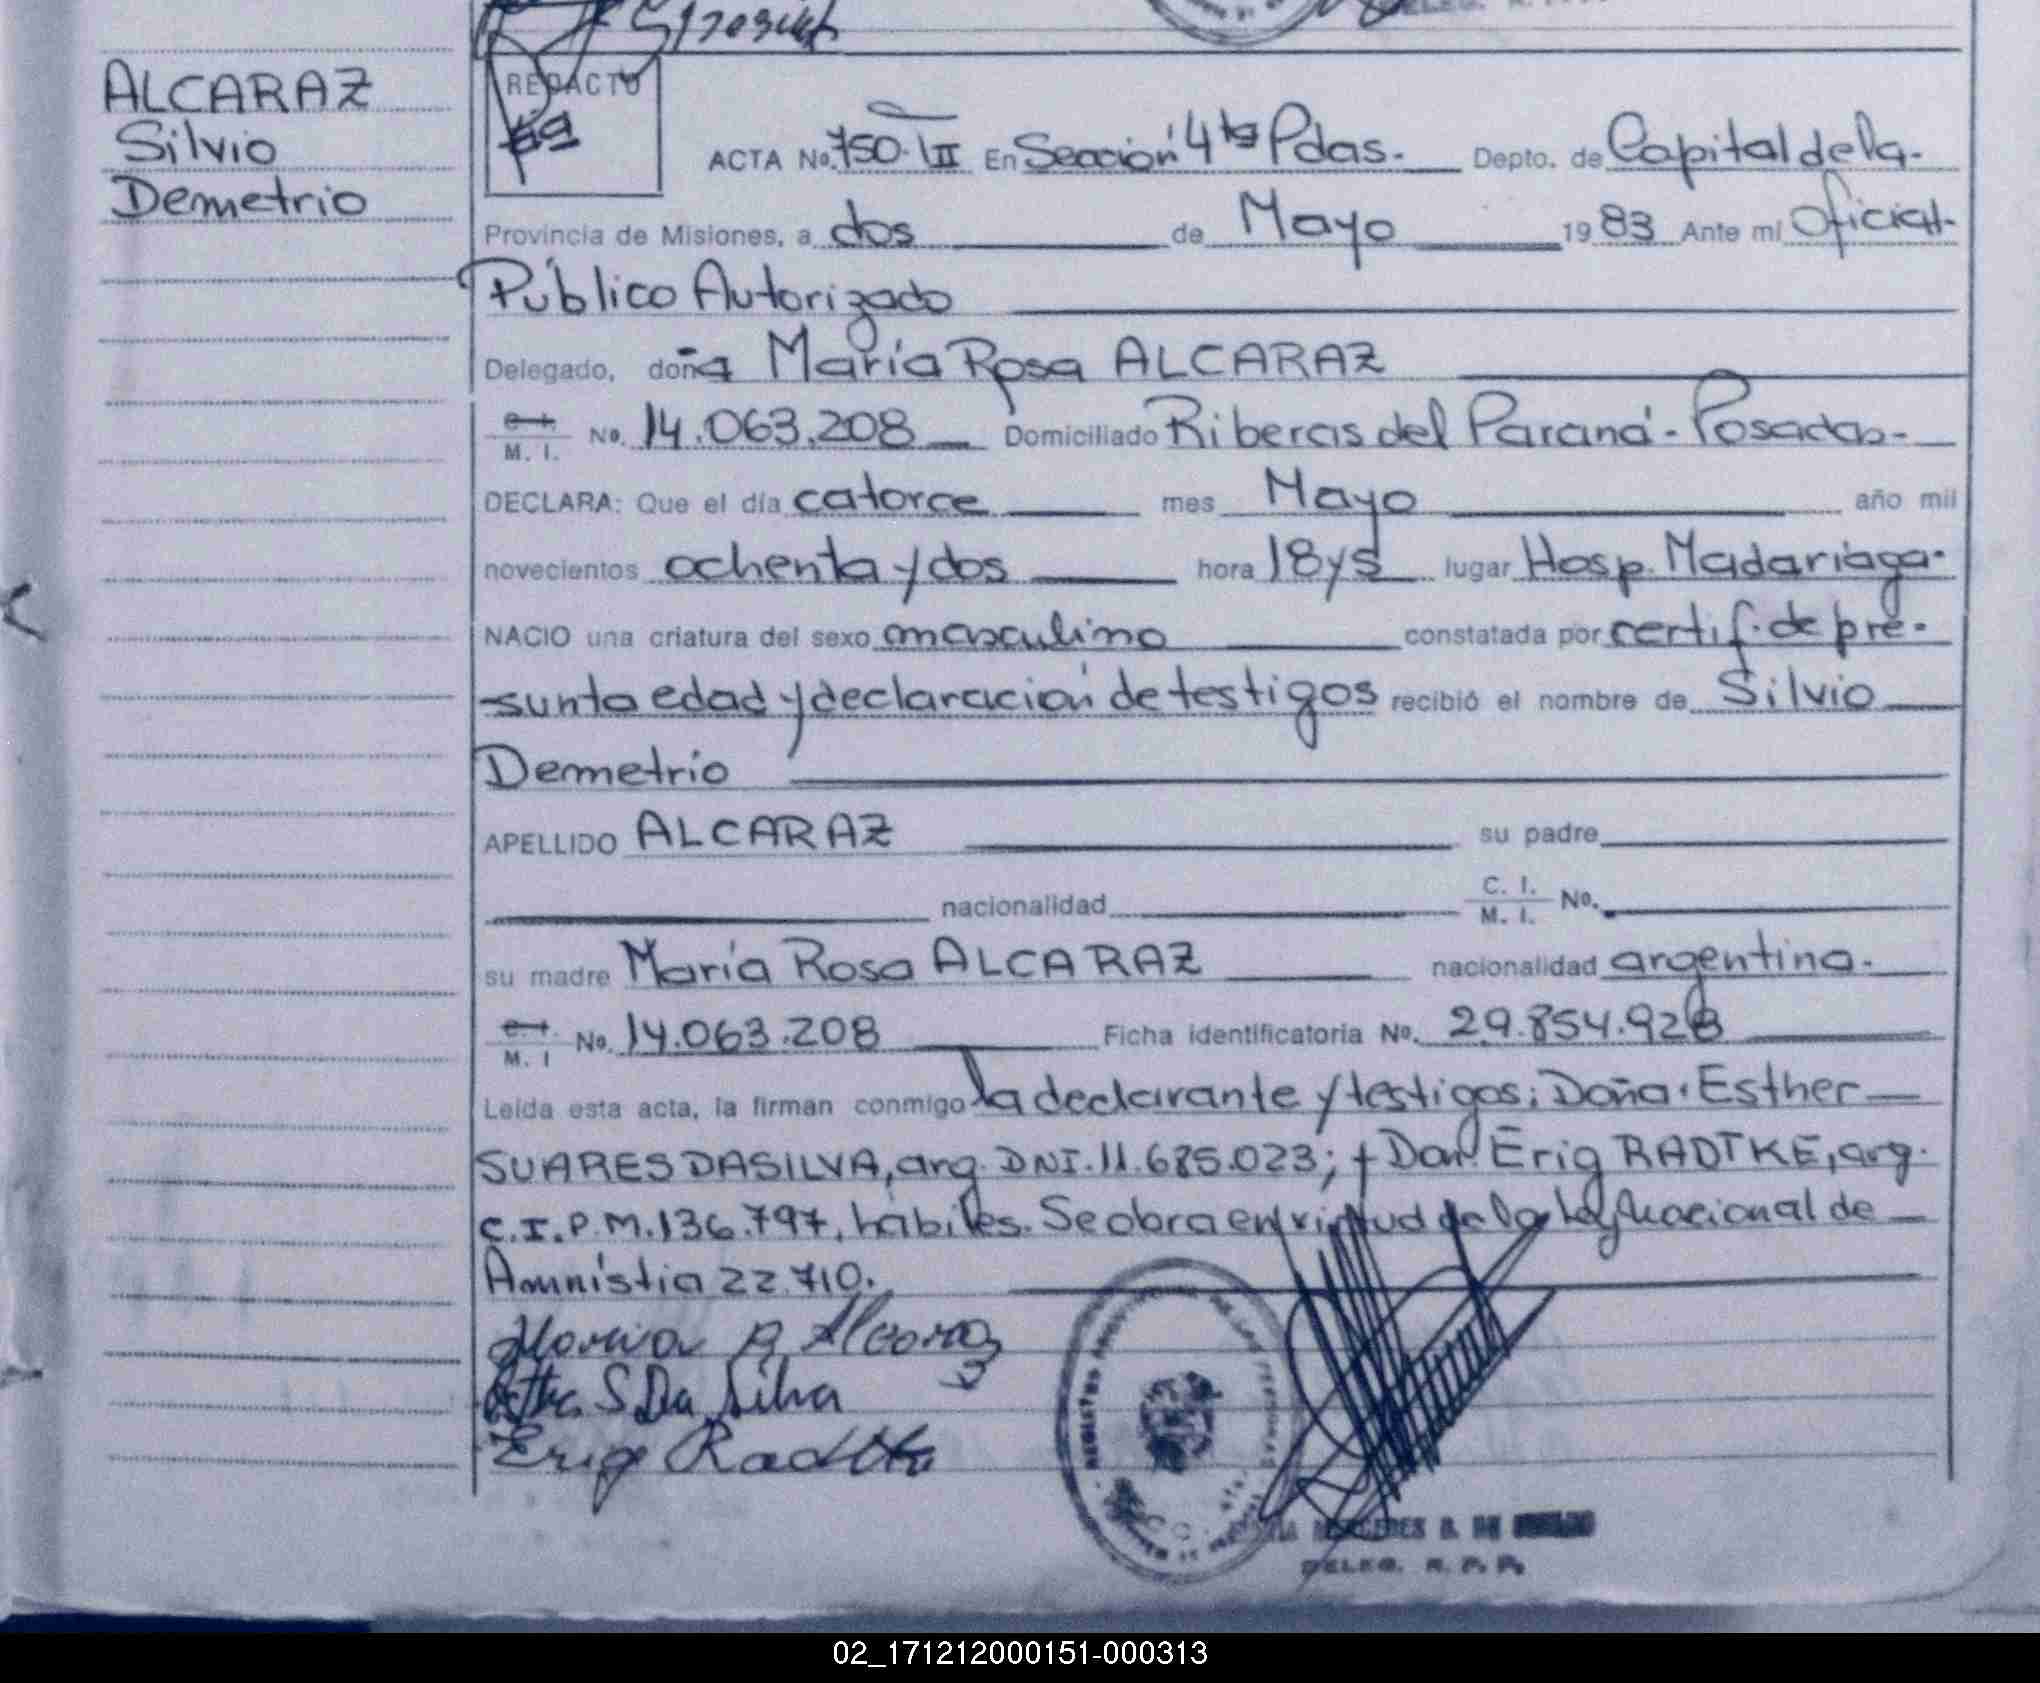 ALCARAZ
Silvio
Demetrio
REDACTO
ACTA No. 750-III En Sección 4ta Pdas. Depto. de Capital de la
Provincia de Misiones, a dos de Mayo 1983 Ante mí Oficial
Público Autorizado
Delegado, doña María Rosa ALCARAZ
M. I. No. 14.063.208 Domiciliado Riberas del Paraná - Posadas -
DECLARA: Que el día catorce mes Mayo año mil
novecientos ochenta y dos hora 18 y 5 lugar Hosp. Madariaga-
NACIO una criatura del sexo masculino constatada por certif. de pre-
sunta edad y declaración de testigos recibió el nombre de Silvio
Demetrio
APELLIDO ALCARAZ su padre
nacionalidad C. I. M. I. No.
su madre María Rosa ALCARAZ nacionalidad argentina.
M. I No. 14.063.208 Ficha identificatoria No. 29.854.928
Leída esta acta, la firman conmigo la declarante y testigos: Doña Esther
SUARES DASILVA, arg. DNI. 11.685.023; y Don Erig RADTKE, arg.
C.I.P.M. 136.797, hábiles. Se obra en virtud de la Ley Nacional de
Amnistia 22.710.
Maria R Alcaraz
S Da Silva
Erig Radtke
DELEG. R. P. P.
02_171212000151-000313